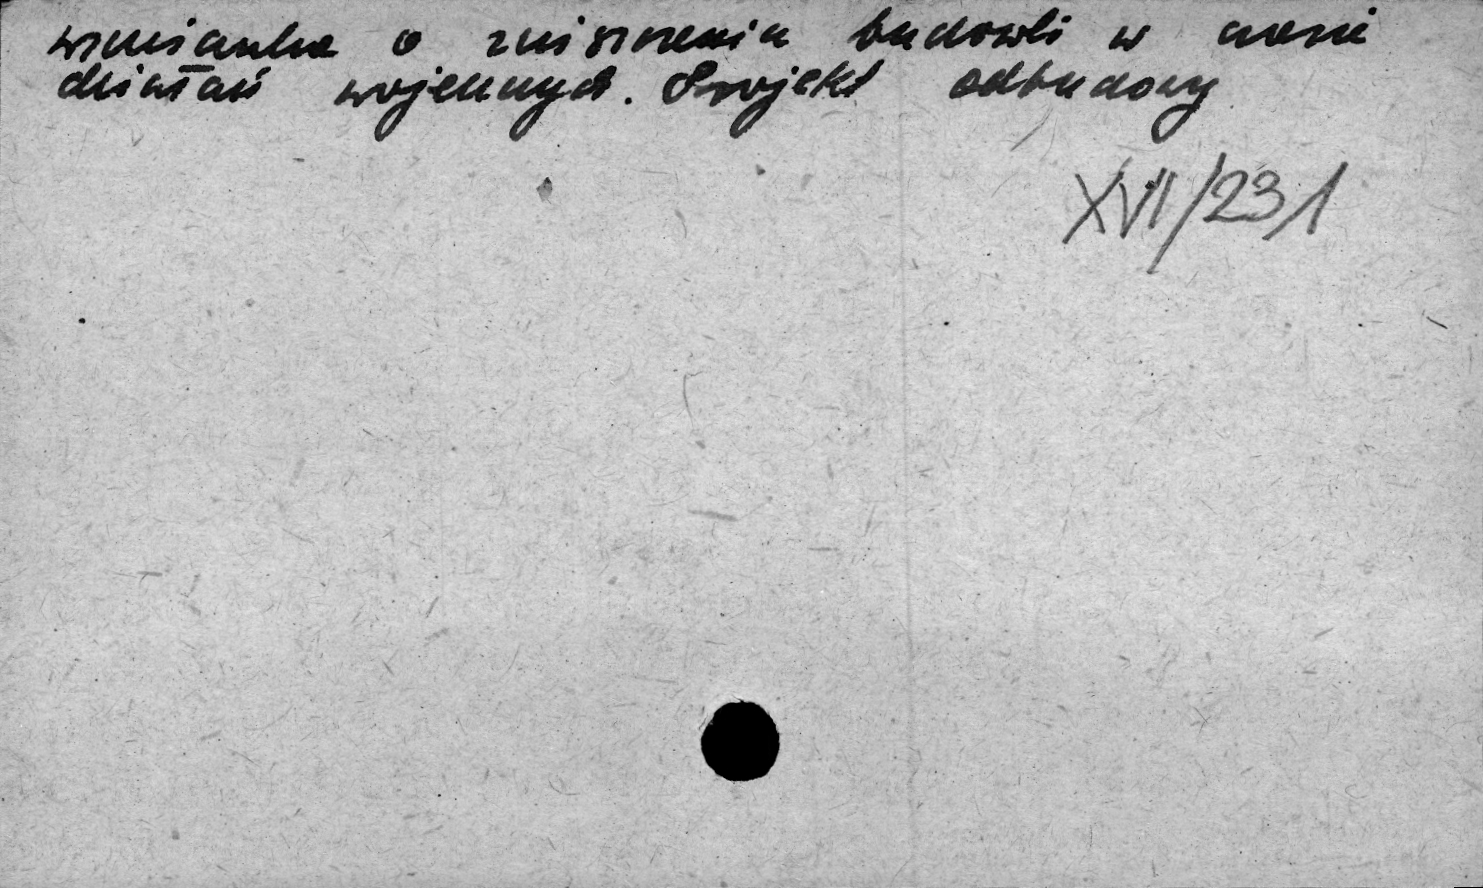 wzmianka o zniszczeniu budowli w czasie
działań wojennych. Projekt odbudowy
XVII/231